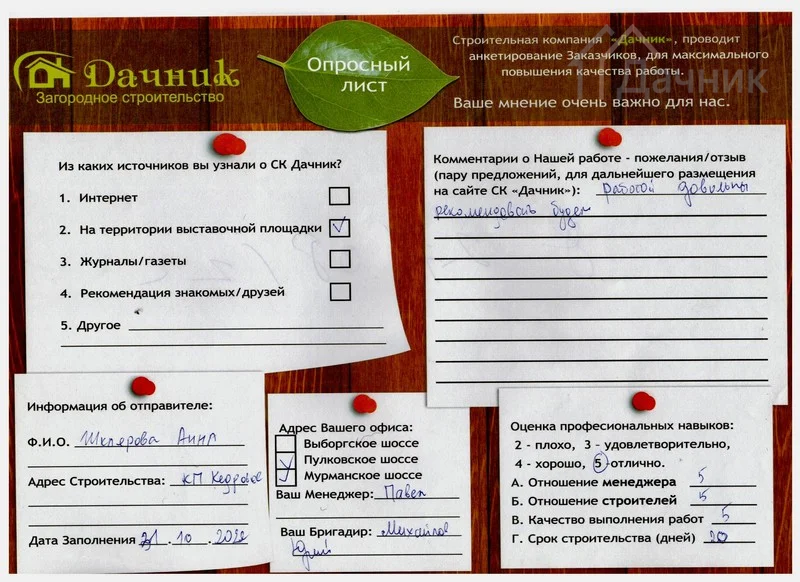 Дачник
Загородное строительство
Опросный
лист
Строительная компания «Дачник», проводит
анкетирование Заказчиков, для максимального
повышения качества работы.
Ваше мнение очень важно для нас.
Дачник
Из каких источников вы узнали о СК Дачник?
1. Интернет
2. На территории выставочной площадки
3. Журналы/газеты
4. Рекомендация знакомых/друзей
5. Другое
Комментарии о Нашей работе - пожелания/отзыв
(пару предложений, для дальнейшего размещения
на сайте СК «Дачник»): работой довольны
рекомендовать будем
Информация об отправителе:
Ф.И.О. Шклярова Анна
Адрес Строительства: КП Кедровое
Дата Заполнения .10.
Адрес Вашего офиса:
Выборгское шоссе
Пулковское шоссе
Мурманское шоссе
Ваш Менеджер: Павел
Ваш Бригадир: Михайлов
Юрий
Оценка професиональных навыков:
2 - плохо, 3 - удовлетворительно,
4 - хорошо, 5 -отлично.
А. Отношение менеджера 5
Б. Отношение строителей 5
В. Качество выполнения работ 5
Г. Срок строительства (дней) 20